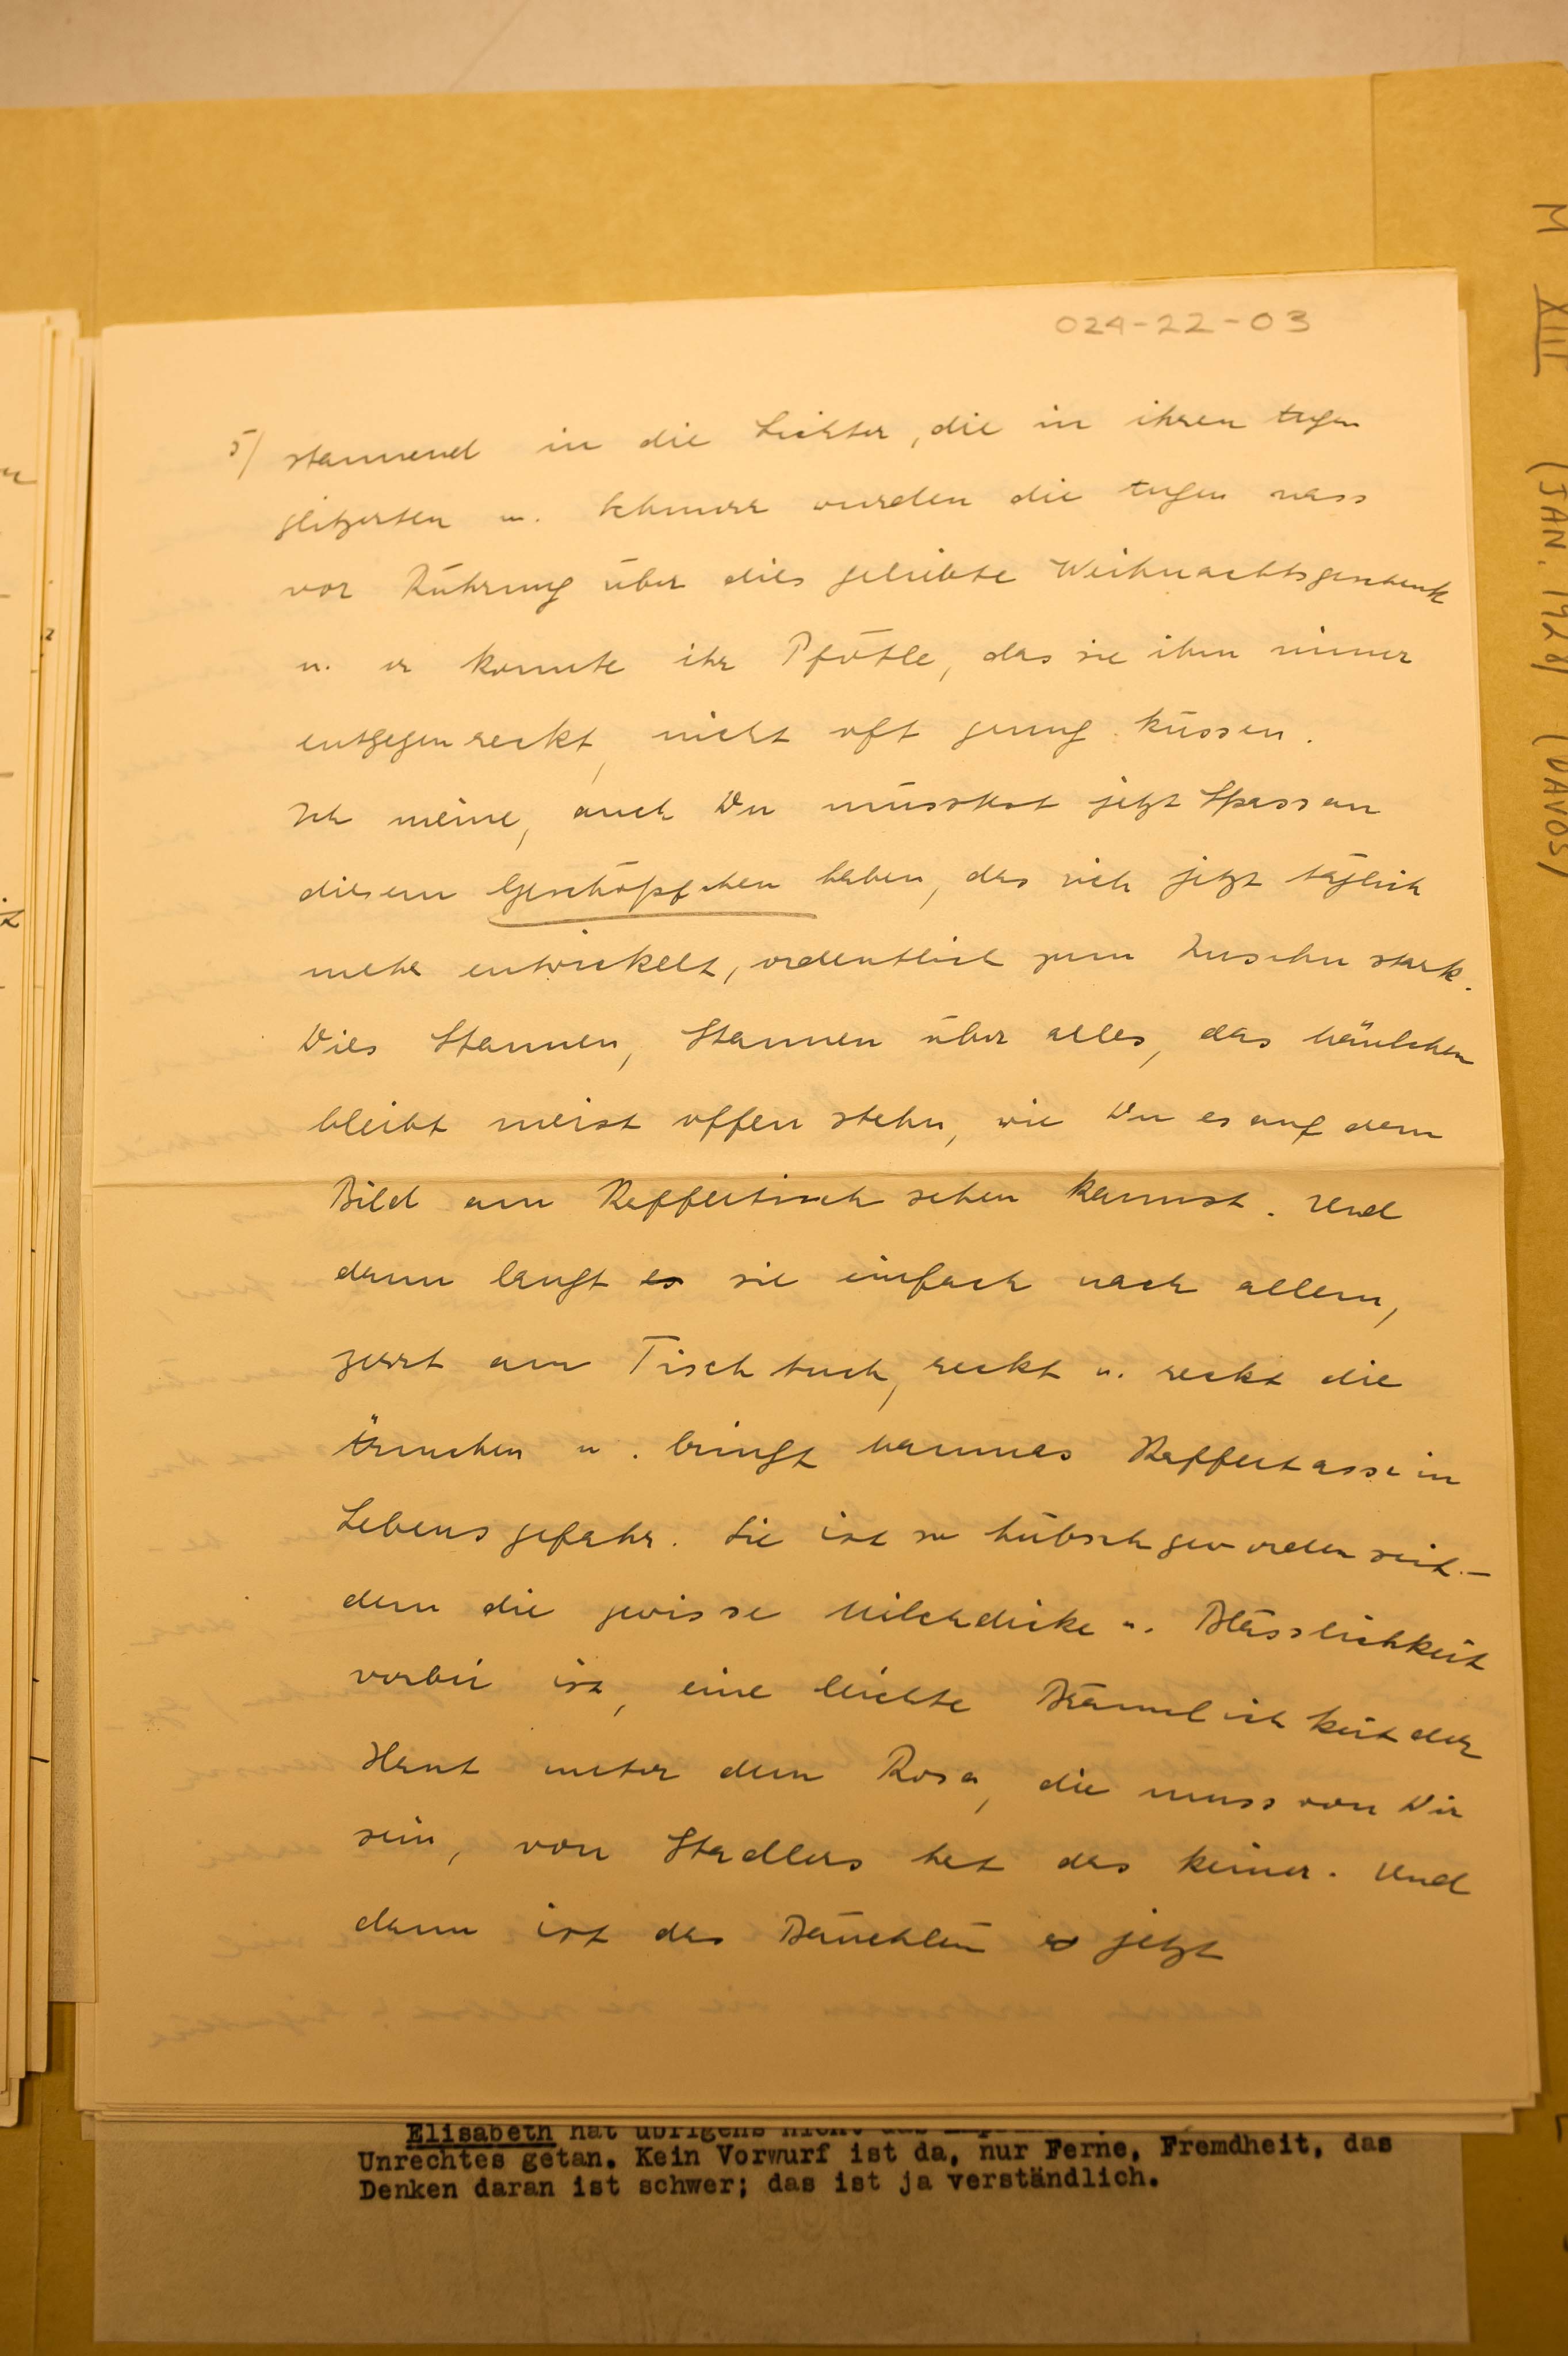 024-22-03
M XIII (JAN. 1928) (DAVOS)
5/ staunend in die Lichter, die in ihren Augen
glitzerten u. Schnurr wurden die Augen nass
vor Rührung über dies geliebte Weihnachtsgeschenk
u. er konnte ihr Pfötle, das sie ihm immer
entgegenreckt, nicht oft genug küssen.
Ich meine, auch Du müsstest jetzt Spass an
diesem Geschöpfchen haben, das sich jetzt täglich
mehr entwickelt, ordentlich zum Zusehn stark.
Dies Staunen, Staunen über alles, das Mäulchen
bleibt meist offen stehn, wie Du es auf dem
Bild am Kaffeetisch sehen kannst. Und
dann langt es sie einfach nach allem,
zerrt am Tischtuch, reckt u. reckt die
Ärmchen u. bringt Mammas Kaffeetasse in
Lebensgefahr. Sie ist so hübsch geworden seit-
dem die gewisse Milchdicke u. Blässlichkeit
vorbei ist, eine leichte Bräunlichkeit der
Haut unter dem Rosa, die muss von Dir
sein, von Stadlers hat das keiner. Und
dann ist das Bäuchlein so jetzt
Elisabeth hat übrigens nicht das
Unrechtes getan. Kein Vorwurf ist da, nur Ferne, Fremdheit, das
Denken daran ist schwer; das ist ja verständlich.